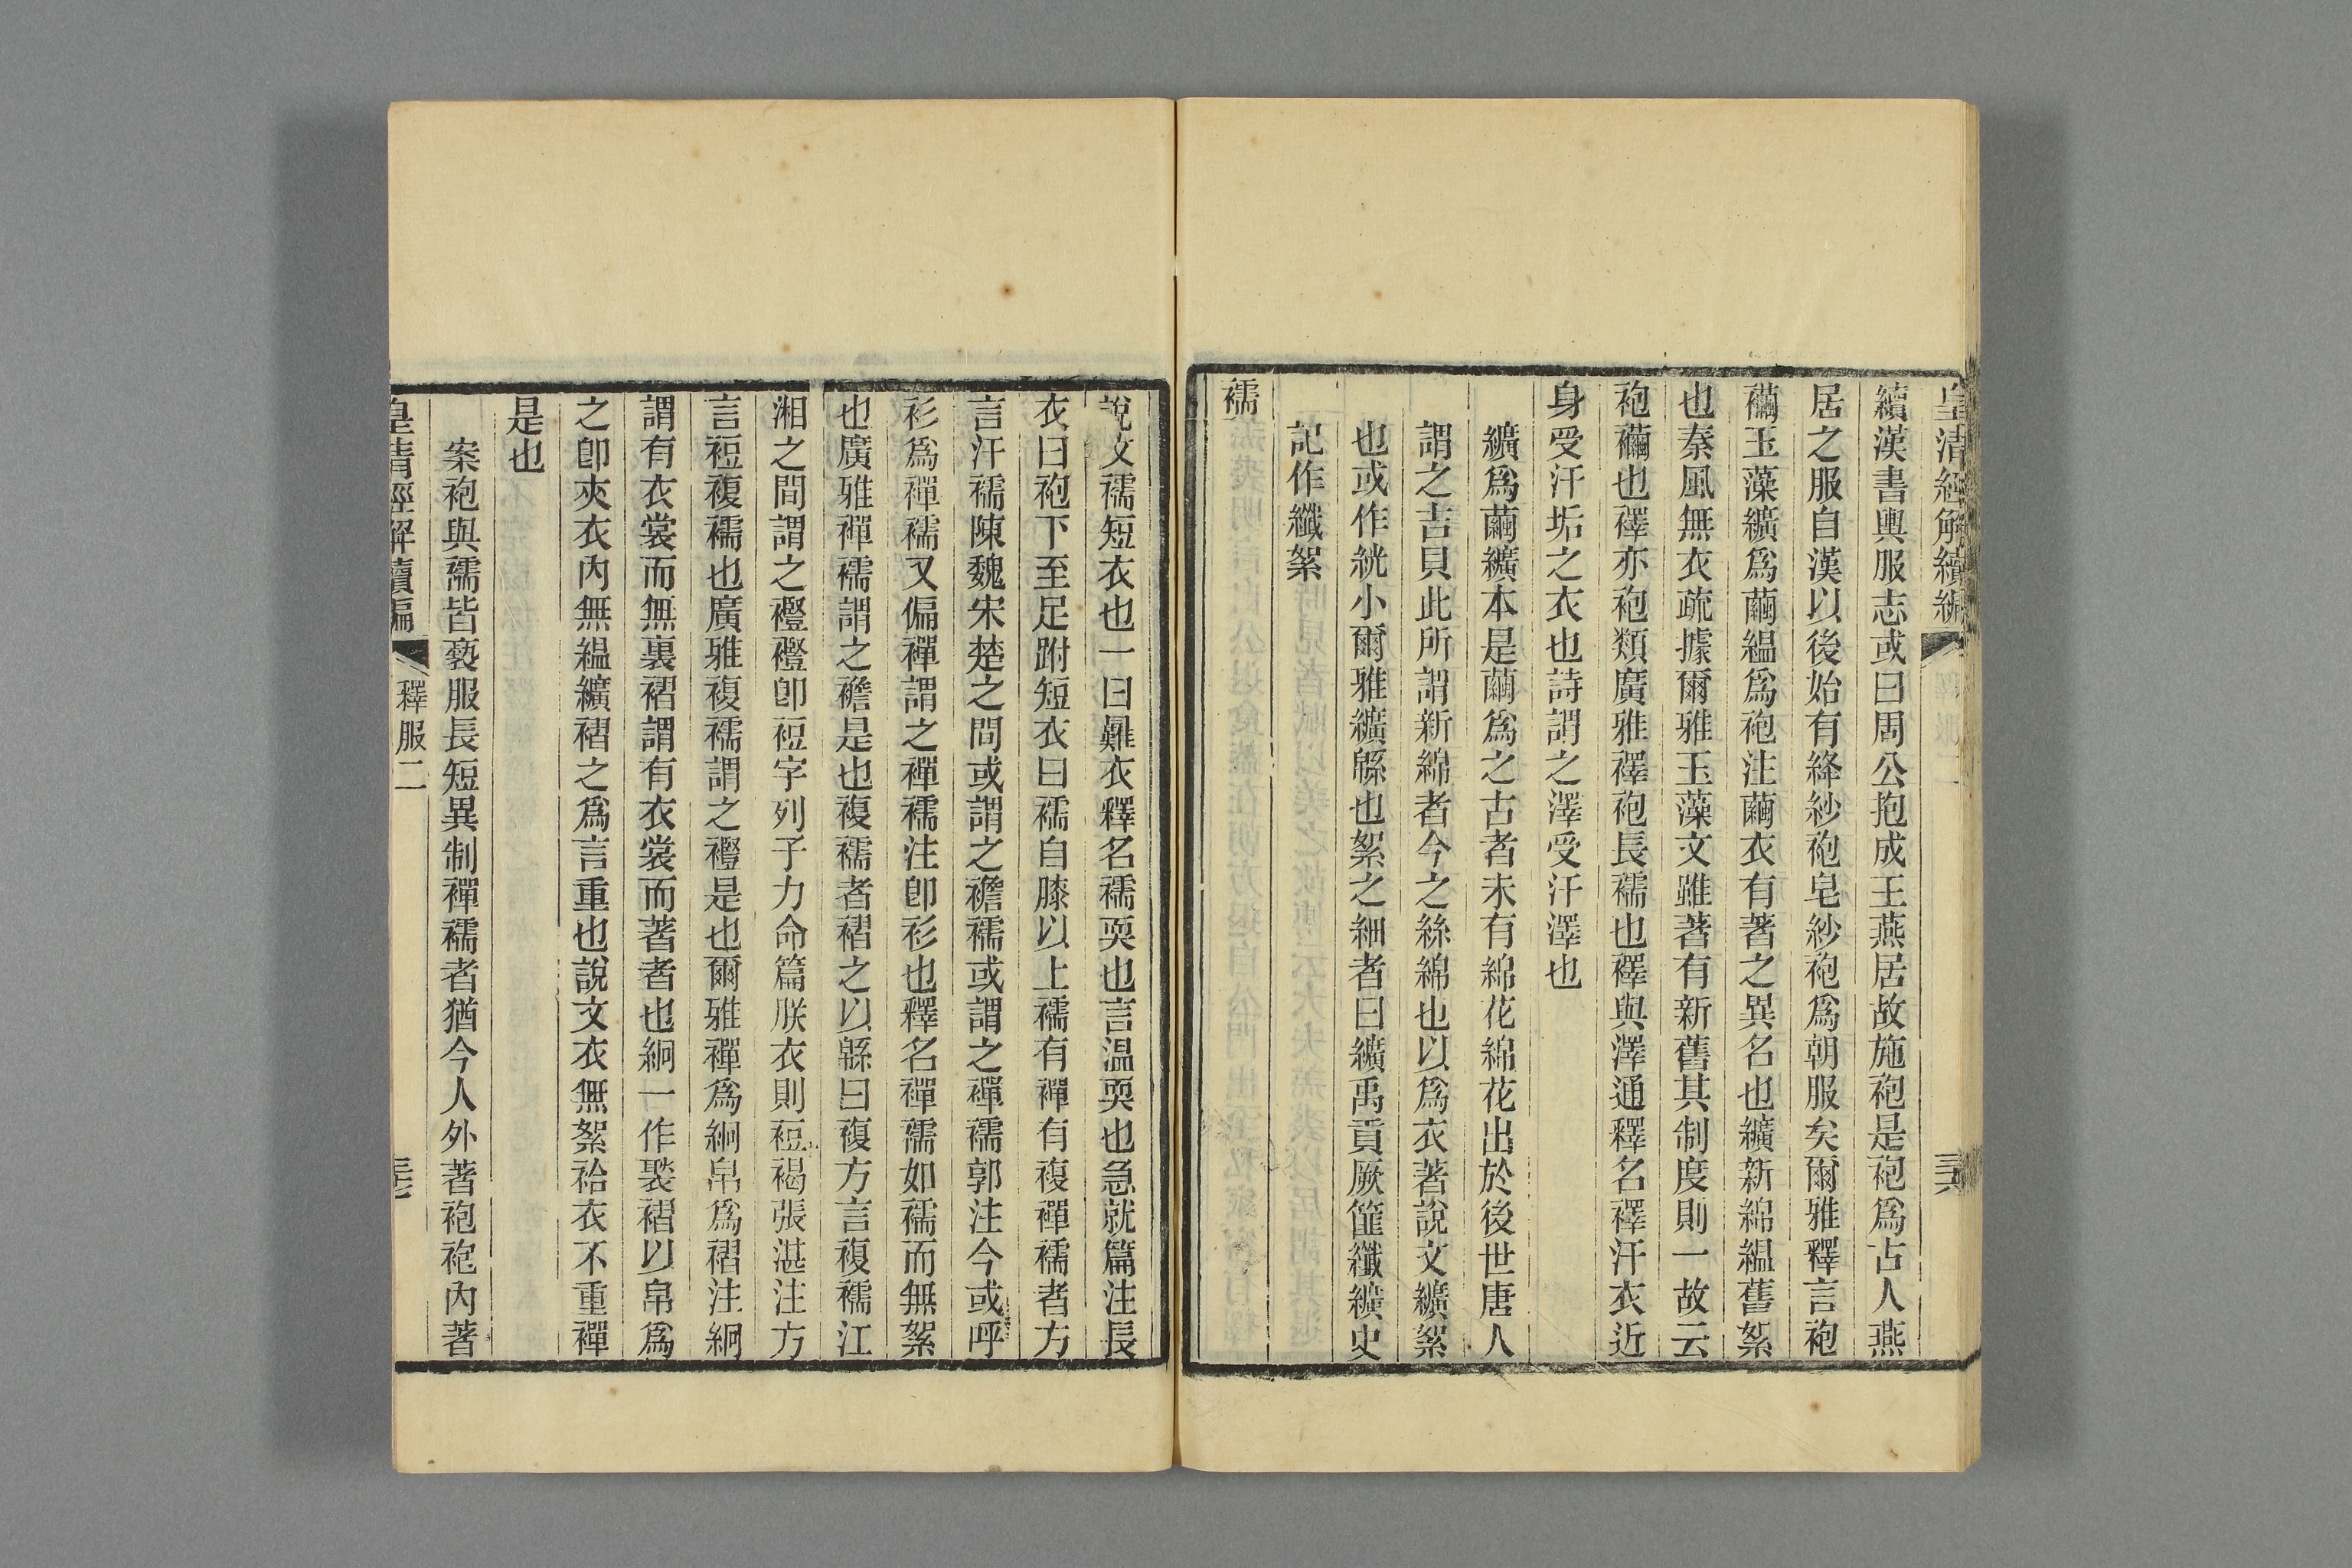 皇清經解續編
續漢書輿服志或曰周公抱成王燕居故施袍是袍爲古人燕
居之服自漢以後始有絳紗袍皂紗袍爲朝服矣爾雅釋言袍
襺玉藻纊爲繭縕爲袍注繭衣有著之異名也纊新綿縕舊絮
也秦風無衣疏據爾雅玉藻文雖著有新舊其制度則一故云
袍襺也襗亦袍類廣雅襗袍長襦也襗與澤通釋名襗汗衣近
身受汗垢之衣也詩謂之澤受汗澤也
纊爲繭纊本是繭爲之古者未有綿花綿花出於後世唐人
謂之吉貝此所謂新綿者今之絲綿也以爲衣著說文纊絮
也或作絖小爾雅纊緜也絮之細者曰纊禹貢厥篚纖纊史
記作纖絮
襦
說文襦短衣也一曰㬮衣釋名襦耎也言温耎也急就篇注長
衣曰袍下至足跗短衣曰襦自膝以上襦有襌有複襌襦者方
言汗襦陳魏宋楚之間或謂之襜襦或謂之襌襦郭注今或呼
衫爲襌襦又偏襌謂之襌襦注卽衫也釋名襌襦如襦而無絮
也廣雅襌襦謂之襜是也複襦者褶之以緜曰複方言複襦江
湘之間謂之䙞䙞卽裋字列子力命篇朕衣則裋褐張湛注方
言裋複襦也廣雅複襦謂之䙞是也爾雅襌爲絅帛爲褶注絅
謂有衣裳而無裏褶謂有衣裳而著者也絅一作褧褶以帛爲
之卽夾衣內無縕纊褶之爲言重也說文衣無絮袷衣不重襌
是也
案袍與襦皆褻服長短異制襌襦者猶今人外著袍袍內著
皇清經解續編
釋服二